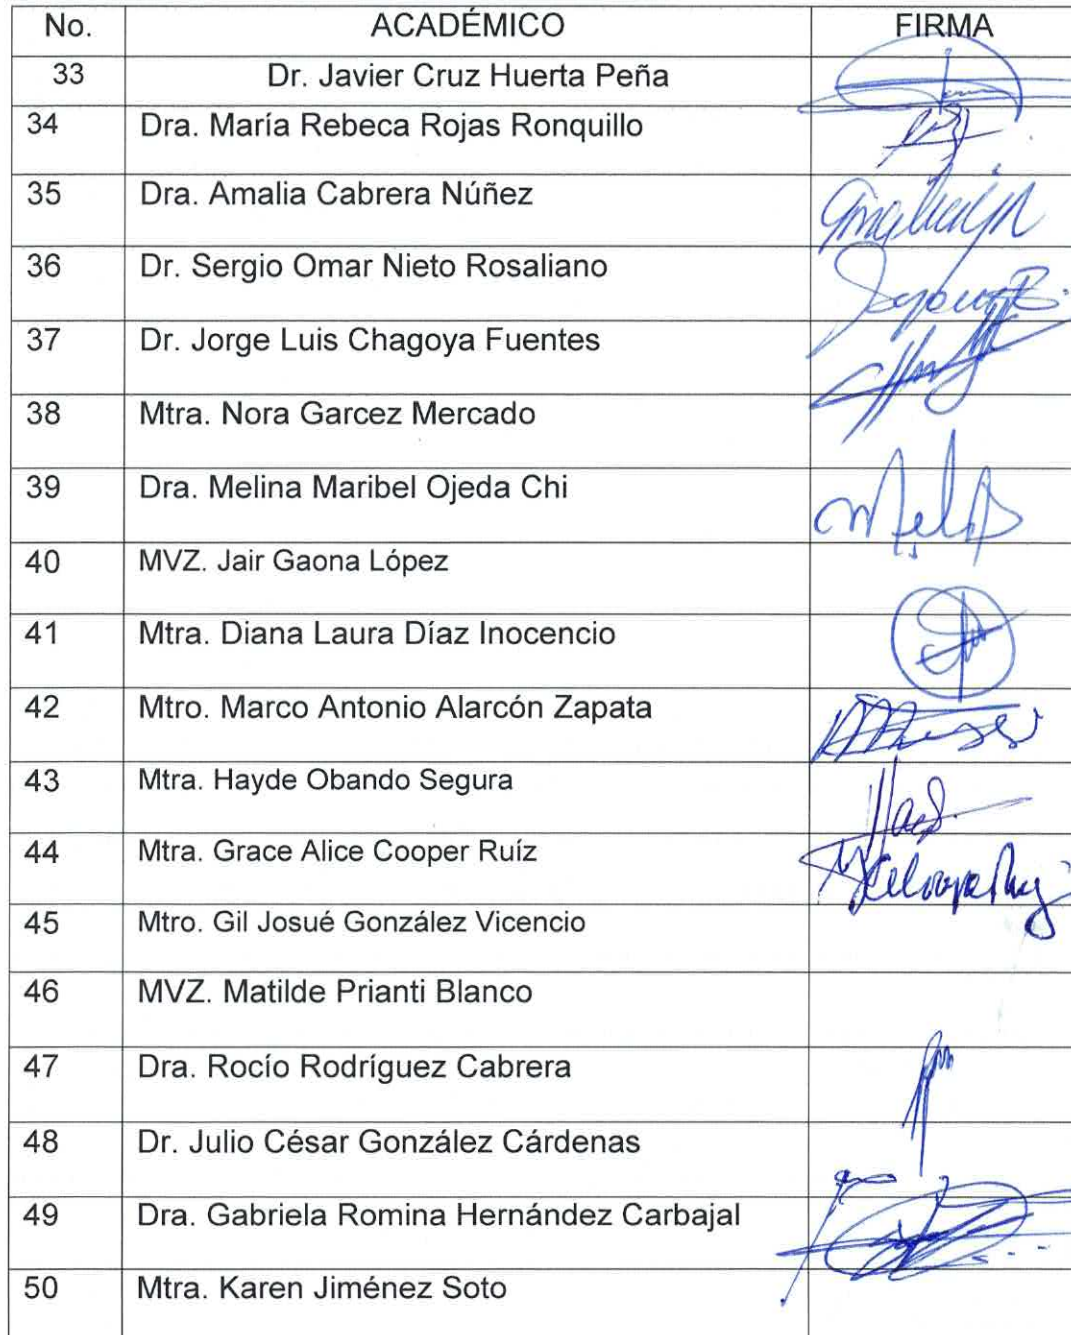 No. ACADÉMICO FIRMA
33 Dr. Javier Cruz Huerta Peña
34 Dra. María Rebeca Rojas Ronquillo
35 Dra. Amalia Cabrera Núñez
36 Dr. Sergio Omar Nieto Rosaliano
37 Dr. Jorge Luis Chagoya Fuentes
38 Mtra. Nora Garcez Mercado
39 Dra. Melina Maribel Ojeda Chi
40 MVZ. Jair Gaona López
41 Mtra. Diana Laura Díaz Inocencio
42 Mtro. Marco Antonio Alarcón Zapata
43 Mtra. Hayde Obando Segura
44 Mtra. Grace Alice Cooper Ruíz
45 Mtro. Gil Josué González Vicencio
46 MVZ. Matilde Prianti Blanco
47 Dra. Rocío Rodríguez Cabrera
48 Dr. Julio César González Cárdenas
49 Dra. Gabriela Romina Hernández Carbajal
50 Mtra. Karen Jiménez Soto